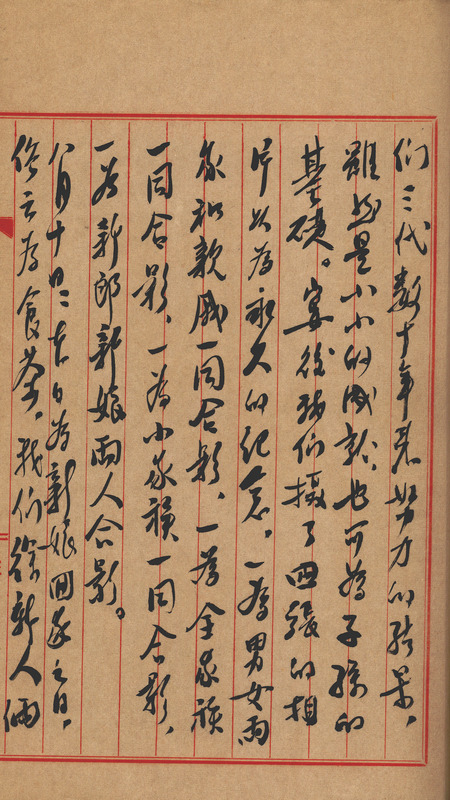 们三代数十年来努力的结果，
雖然是小小的成就，也可為子孫的
基礎。宴後我们摄了四張的相
片以為永久的紀念。一為男女兩
家和親戚一同合影，一為全家族
一同合影，一為小家族一同合影，
一為新郎新娘兩人合影。
八月十日：本日為新娘回家之日，
俗云為食茶。我们除新人俩